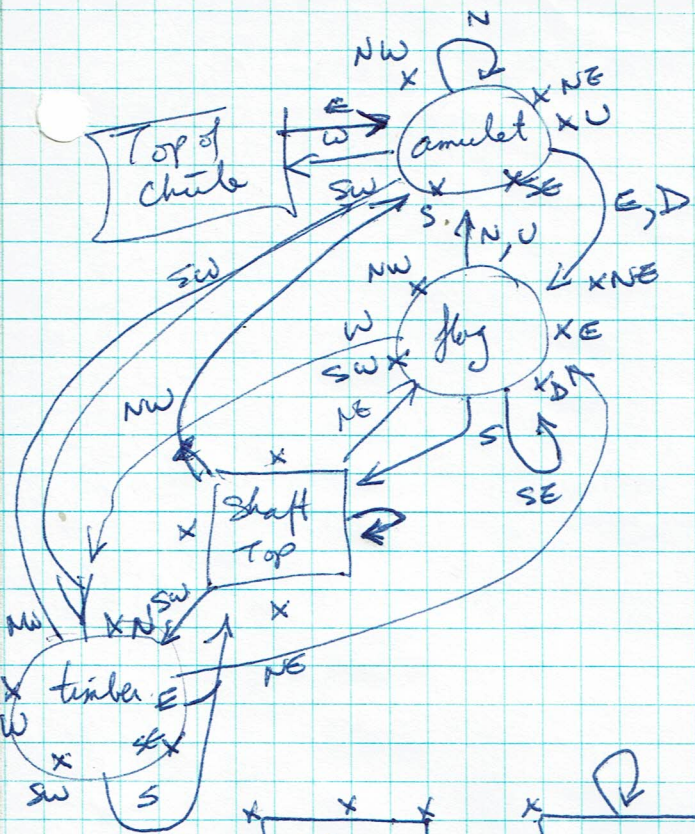 N
NW
x
x NE
x U
E
W
Top of
chute
amulet
SW
x
S
x SE
E, D
N, U
SW
NW
x
x NE
W
SW x
flag
x E
x D
NW
NE
S
SE
x
x
Shaft
Top
x
SW
NW
x N
NE
x
W
timber
E
SE x
x
SW
S
x
x
x
x